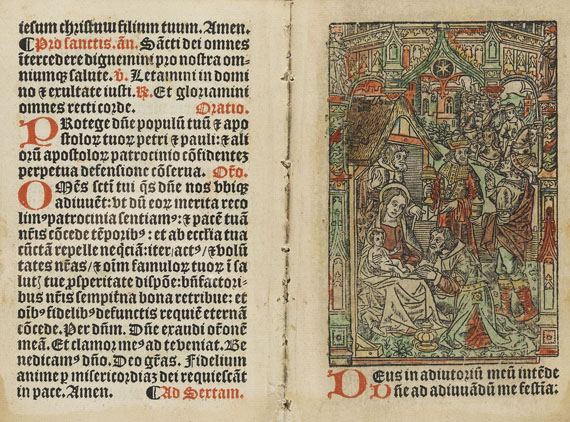 iesum christnu filium tuum. Amen.
¶Pro sanctis. añ. Sācti dei omnes
ītercedere dignemini pro nostra om-
niumqꝫ salute. ℣. Letamini in domi
no ⁊ exultate iusti. ℟. Et gloriamini
omnes recti corde. Oratio.
PRotege dñe populū tuū ⁊ apo
stoloꝝ tuoꝝ petri ⁊ pauli: ⁊ ali
orū apostoloꝝ patrocinio cōfidentez
perpetua defensione cōserua. Oŕo.
OMēs scti tui q̄s dñe nos vbiqꝫ
adiuuēt: vt dū eoꝝ merita reco
limꝰ patrocinia sentiamꝰ: ⁊ pacē tuā
nr̄is cōcede tēporibꝰ: ⁊ ab ecclīa tua
cūctam repelle neq̄tiā: iter/actꝰ/⁊ volū
tates nr̄as/⁊ oīm famuloꝝ tuoꝝ ī sa
lutꝭ tue ꝓsperitate dispōe: bn̄factori-
bus nr̄is sempit̄na bona retribue: et
oībꝰ fidelibꝰ defunctis requiē eternā
cōcede. Per dn̄m. Dn̄e exraudi or̄onē
meā. Et clamor meꝰ ad te veniat. Be
nedicamꝰ dn̄o. Deo gr̄as. Fidelium
anime ꝑ misericordiaz dei requiescāt
in pace. Amen. ¶Ad Sextam.
DEus in adiutoriū meū intēde
Dn̄e ad adiuuādū me festīa: